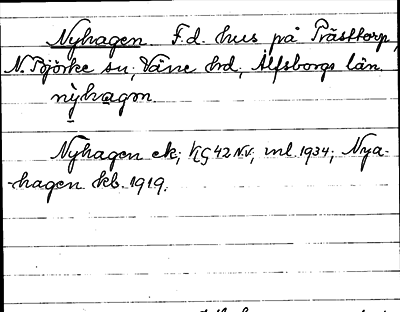 Nyhagen F.d. hus på Prästtorp,
N. Björke sn, Väne hd, Älfsborgs län.
nỳhagɒn.
Nyhagen ek; KG 42 N.V., ml. 1934; Nya-
-hagen kb. 1919.